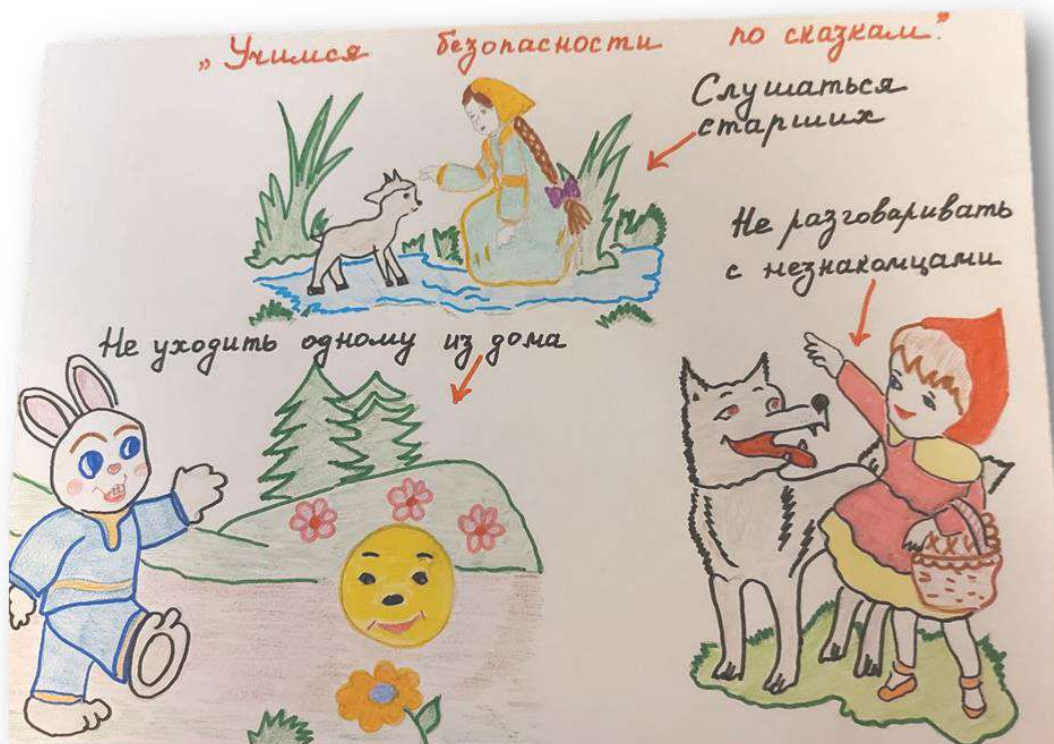 „Учимся безопасности по сказкам."
Слушаться
старших
Не разговаривать
с незнакомцами
Не уходить одному из дома